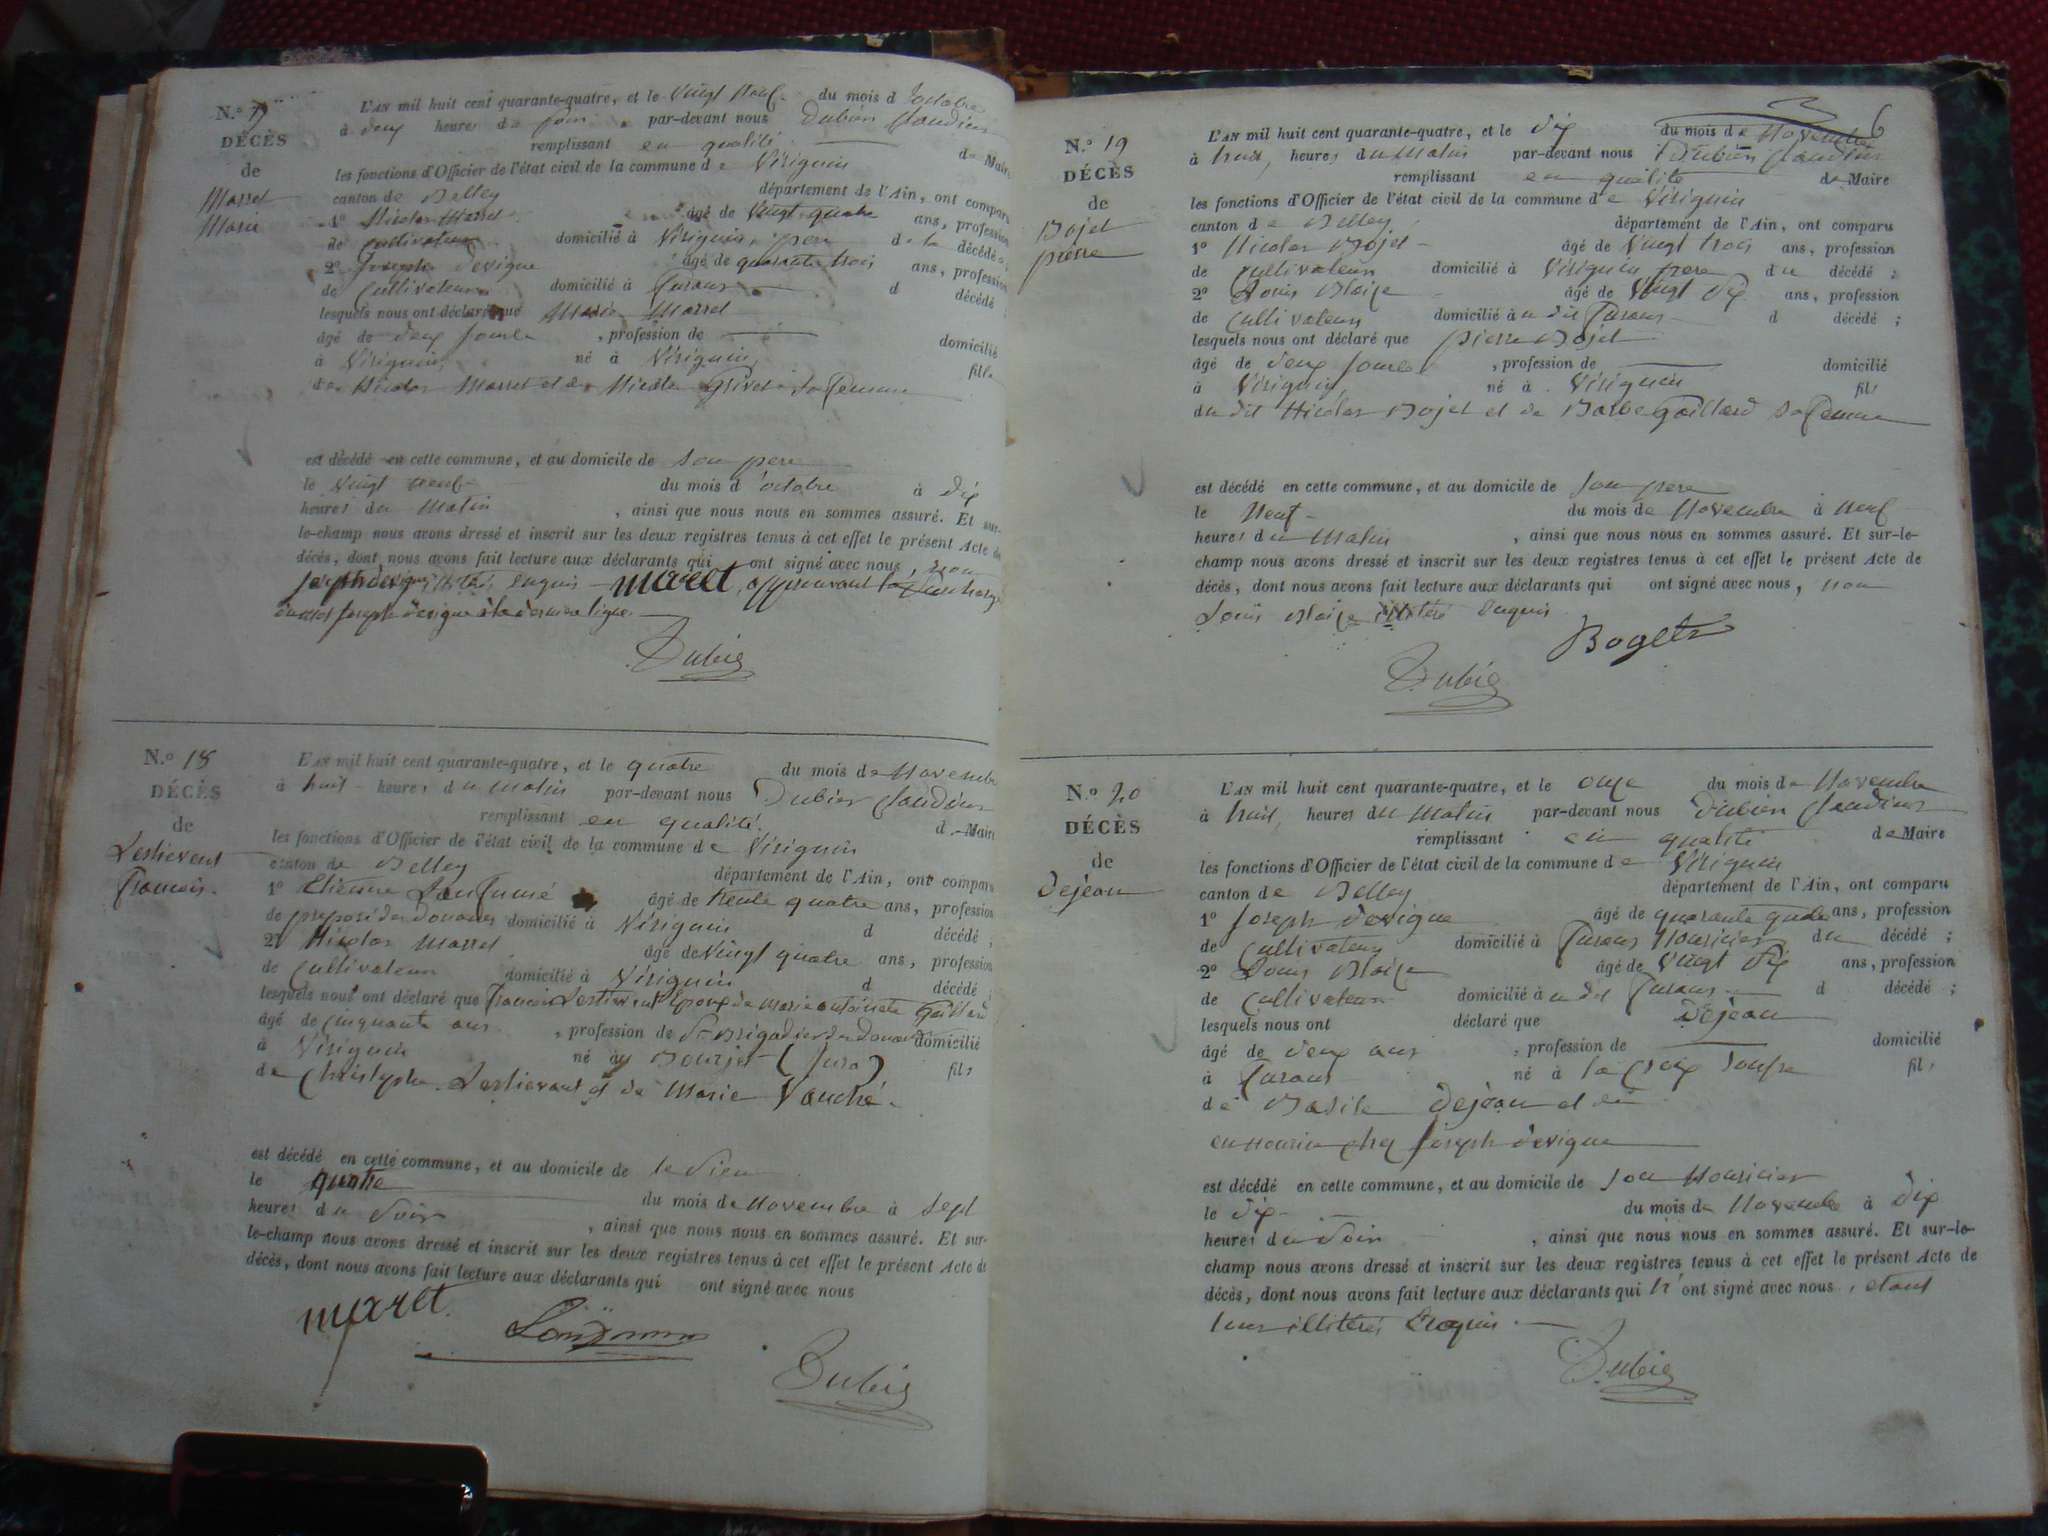 N.º
DÉCÈS
de
Marret
Marie
L'AN mil huit cent quarante-quatre, et le vingt neuf du mois d'octobre
à deux heures du soir par-devant nous Dubien Claudius
remplissant en qualité de Maire
les fonctions d'Officier de l'état civil de la commune de Virignin
canton de Belley département de l'Ain, ont comparu
1º Nicolas Marret âgé de vingt quatre ans, profession
de cultivateur domicilié à Virignin, père de la décédée
2º Joseph Devigne âgé de quarante trois ans, profession
de cultivateur domicilié à d décédé ;
lesquels nous ont déclaré que Marie Marret
âgé de deux jours, profession de domicilié
à Virignin, né à Virignin, fille
de Nicolas Marret et de Nicole Grivet sa femme
est décédé en cette commune, et au domicile de son père
le vingt neuf du mois d'octobre à dix
heures du matin, ainsi que nous nous en sommes assuré. Et sur-
le-champ nous avons dressé et inscrit sur les deux registres tenus à cet effet le présent Acte de
décès, dont nous avons fait lecture aux déclarants qui ont signé avec nous, non
Joseph Devigne enquis maret, approuvant la
Joseph Devigne à la dernière ligne.
Dubie
N.º 18
DÉCÈS
de
Lestievent
francois
L'AN mil huit cent quarante-quatre, et le quatre du mois de Novembre
à huit heures du matin par-devant nous Dubien Claudius
remplissant en qualité de Maire
les fonctions d'Officier de l'état civil de la commune de Virignin
canton de Belley département de l'Ain, ont comparu
1º Etienne âgé de trente quatre ans, profession
de preposé des douanes domicilié à Virignin d décédé ;
2º Nicolas Marret âgé de vingt quatre ans, profession
de cultivateur domicilié à Virignin d décédé ;
lesquels nous ont déclaré que francois Lestievent époux de marie antoinette Gaillard
âgé de cinquante ans, profession de Brigadier des douanes domicilié
à Virignin né à (Jura) fils
de Christophe Lestievant et de Marie Vauché.
est décédé en cette commune, et au domicile de le sien
le quatre du mois de Novembre à sept
heures du soir, ainsi que nous nous en sommes assuré. Et sur-
le-champ nous avons dressé et inscrit sur les deux registres tenus à cet effet le présent Acte de
décès, dont nous avons fait lecture aux déclarants qui ont signé avec nous
maret.
Dubie
6
N.º 19
DÉCÈS
de
Bojet
pierre
L'AN mil huit cent quarante-quatre, et le dix du mois de Novembre
à huit, heures du matin par-devant nous Dubien Claudius
remplissant en qualité de Maire
les fonctions d'Officier de l'état civil de la commune de Virignin
canton de Belley département de l'Ain, ont comparu
1º Nicolas Bojet âgé de vingt trois ans, profession
de cultivateur domicilié à Virignin, père du décédé ;
2º Louis Blaize âgé de vingt dix ans, profession
de cultivateur domicilié à u dit d décédé ;
lesquels nous ont déclaré que pierre Bojet
âgé de deux jours, profession de domicilié
à Virignin, né à Virignin fils
du dit Nicolas Bojet et de Barbe Gaillard sa femme
est décédé en cette commune, et au domicile de son père
le neuf du mois de Novembre à neuf
heures du matin, ainsi que nous nous en sommes assuré. Et sur-le-
champ nous avons dressé et inscrit sur les deux registres tenus à cet effet le présent Acte de
décès, dont nous avons fait lecture aux déclarants qui ont signé avec nous, non
Louis Blaize enquis
Boget
Dubie
N.º 20
DÉCÈS
de
Dejean
L'AN mil huit cent quarante-quatre, et le onze du mois de Novembre
à huit, heures du matin par-devant nous Dubien Claudius
remplissant en qualité de Maire
les fonctions d'Officier de l'état civil de la commune de Virignin
canton de Belley département de l'Ain, ont comparu
1º Joseph Devigne âgé de quarante quatre ans, profession
de cultivateur domicilié à Nouricier du décédé ;
2º Louis Blaize âgé de vingt dix ans, profession
de cultivateur domicilié à u dit d décédé ;
lesquels nous ont déclaré que Dejean
âgé de deux ans, profession de domicilié
à né à la croix rousse fils
de Basile Dejean et de
en nourice chez Joseph Devigne
est décédé en cette commune, et au domicile de son Nouricier
le dix du mois de Novembre à dix
heures du soir, ainsi que nous nous en sommes assuré. Et sur-le-
champ nous avons dressé et inscrit sur les deux registres tenus à cet effet le présent Acte de
décès, dont nous avons fait lecture aux déclarants qui n'ont signé avec nous, étant
tous illitérés enquis.
Dubie